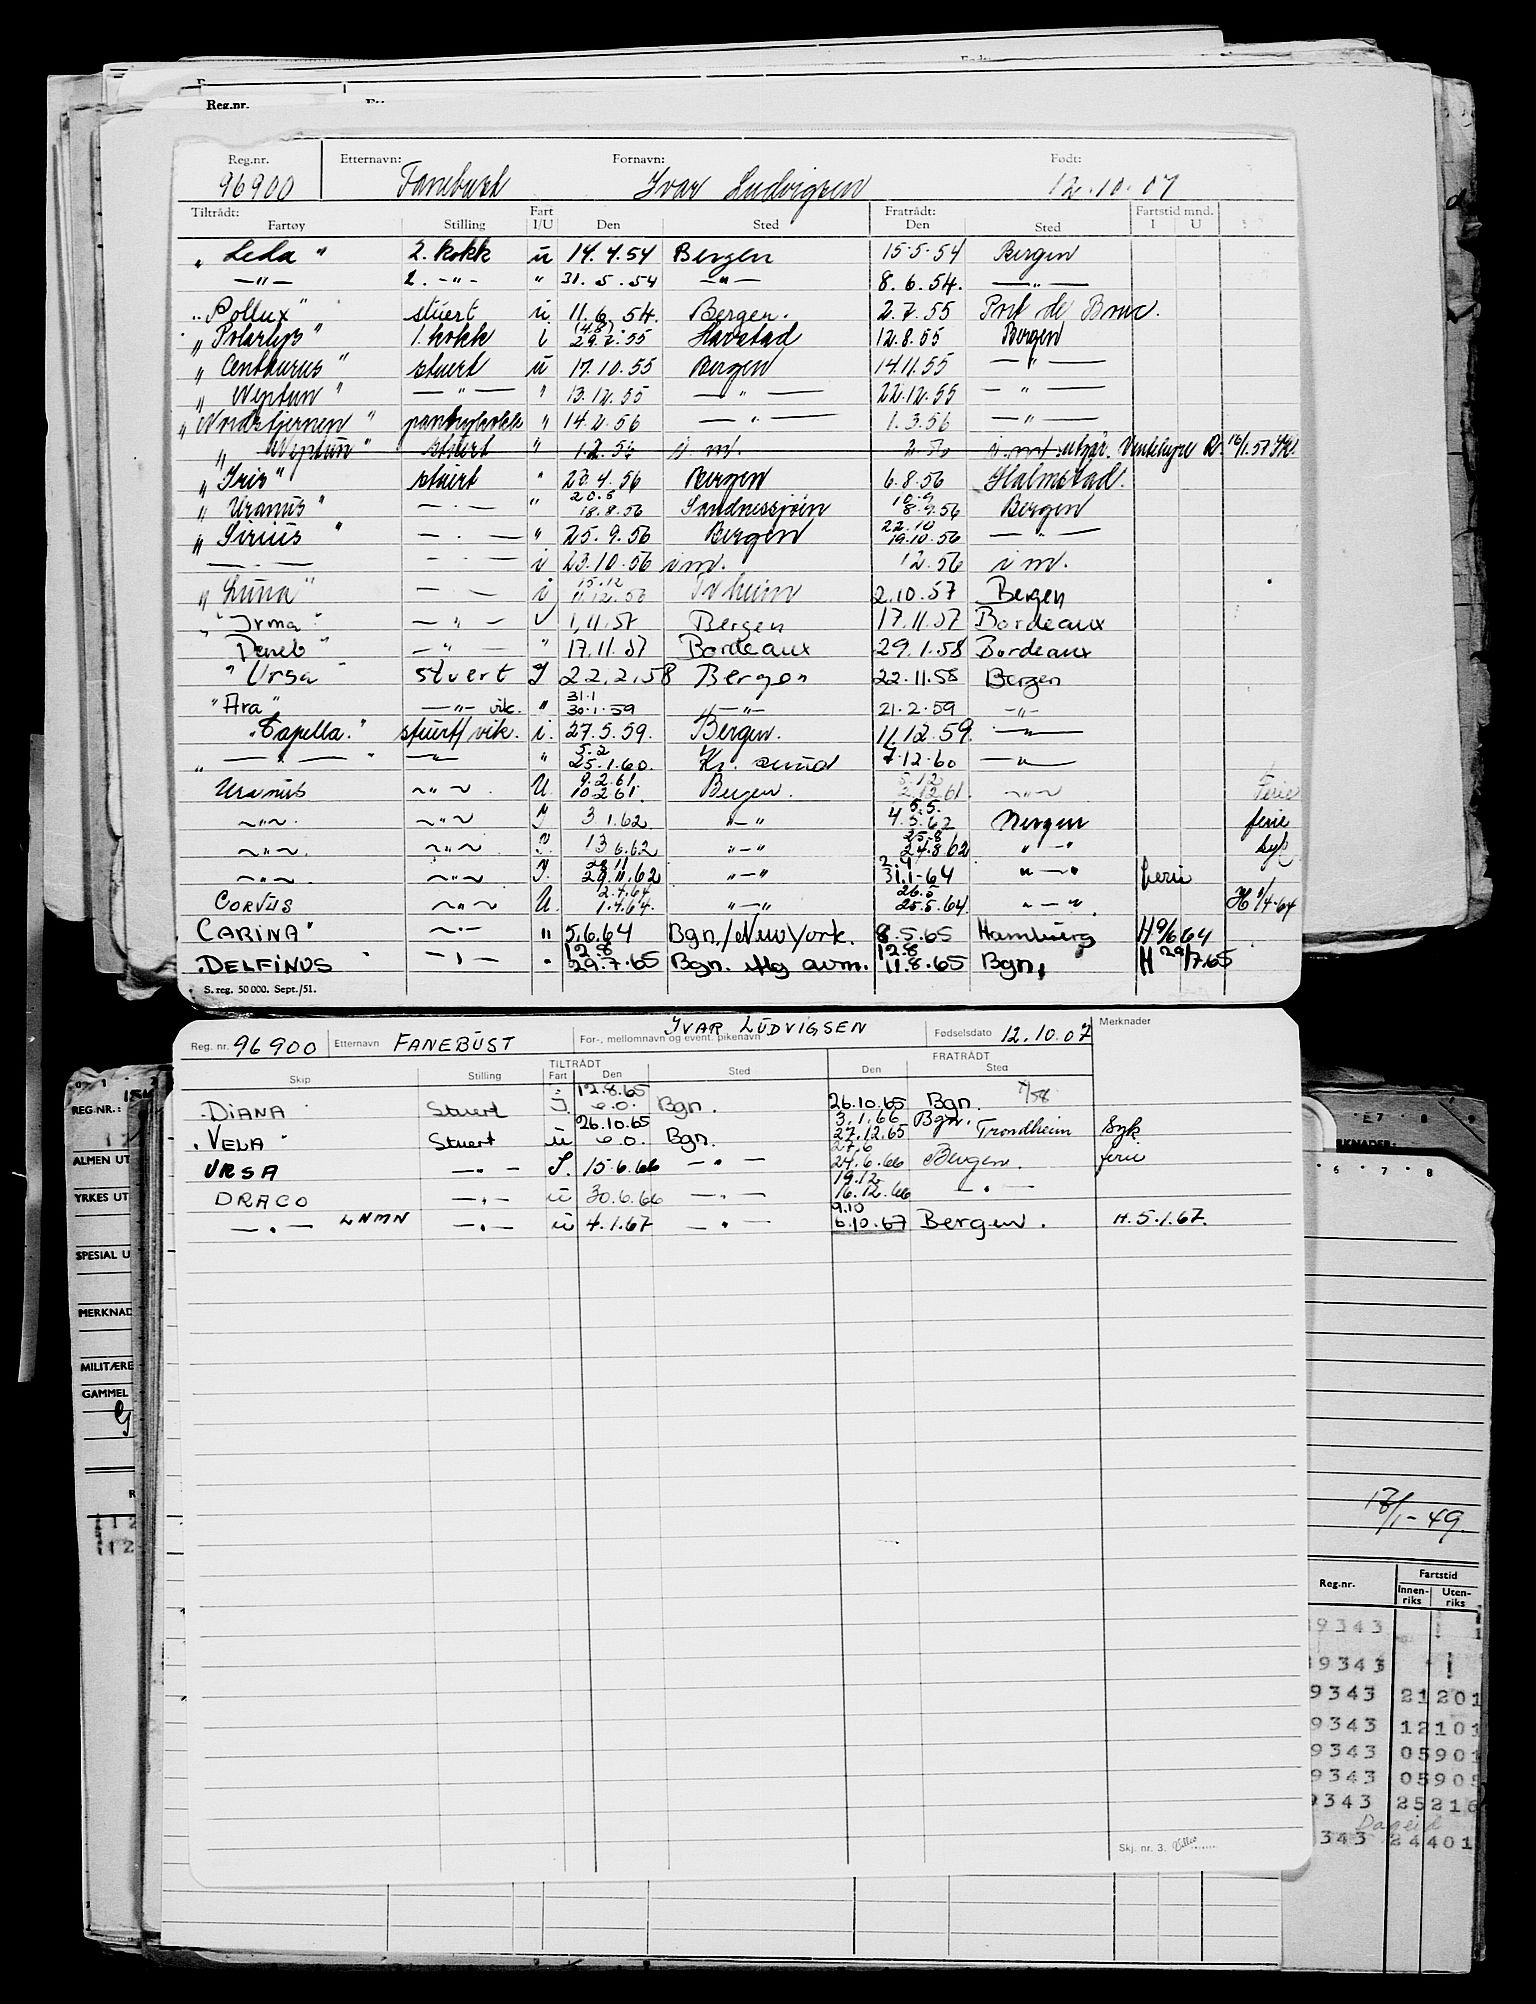 Reg.nr.
Reg.nr. Etternavn: Fornavn: Født:
96900 Fanebust Ivar Ludvigsen 12.10.07
Tiltrådt: Fart Fratrådt: Fartstid mnd.
Fartøy Stilling I/U Den Sted Den Sted I U
" Leda " 2. kokk u 14.4.54 Bergen 15.5.54 Bergen
—"— 2. -"- " 31.5.54 —"— 8.6.54. —"—
" Pollux " stuert u 11.6.54. Bergen. 2.7.55 Port de Bouc.
" Polarlys " 1. kokk i 29.7.55 Harstad 12.8.55 Bergen
" Centaurus " stuert u 17.10.55 Bergen 14.11.55 —"—
" Neptun " —"— " 13.12.55 —"— 22.12.55 —"—
" Nordstjernen " pantrykokk " 14.2.56 —"— 1.3.56 —"—
" Neptun " stuert " 1.2.56 i.m. 2.56 i.m. utgår Ventehyre 16/1.57
" Iris " stuert " 23.4.56 Bergen 6.8.56 Halmstad.
" Uranus " —.— " 20.8 18.8.56 Sandnessjøen 10.9 8.9.56 Bergen
" Sirius " —.— " 25.9.56 Bergen 22.10 19.10.56 —"—
—.— —.— i 23.10.56 i m. 12.56 i m.
" Luna " —.— i 15.12 11.12.56 Tr heim 2.10.57 Bergen
" Irma " —"— U 1.11.57 Bergen 17.11.57 Bordeaux
" Deneb " —"— " 17.11.57 Bordeaux 29.1.58 Bordeaux
" Ursa " stuert I 22.2.58 Bergen 22.11.58 Bergen
" Ara " —"— vik. " 31.1 30.1.59 —"— 21.2.59 —"—
" Capella " stuert/vik. i. 27.5.59. Bergen. 11.12.59. —"—
" —.— " —"— " 5.2 25.1.60. Kr. sund 7.12.60 —"—
Uranus ~"~ U. 9.2.61 10.2.61. Bergen. 5.12 2.12.61. ~"~ Ferie
~"~ ~"~ I 3.1.62. —"— 5.5. 4.5.62 Bergen ferie
~"~. ~"~ I. 13.6.62 —"— 25.8 24.8.62 "—" syk
~"~. ~"~ I. 28.11 29.11.62 —"— 2.4 31.1-64 "—" ferie
CORVUS ~"~ U. 2.4.64 1.4.64. —"— 26.5 25.5.64. "—" H 1/4-64
CARINA" ~.~ " 5.6.64 Bgn./New York. 8.5.65 Hamburg H 9/6 64
.DELFINUS —.— " 12.8 29.7.65 Bgn. Mg avm. 12.8 11.8.65 Bgn. H 29/7.65
S. reg. 50 000. Sept./51.
Reg. nr. 96900 Etternavn FANEBUST For-, mellomnavn og event. pikenavn IVAR LUDVIGSEN Fødselsdato 12.10.07 Merknader
TILTRÅDT FRATRÅDT
Skip Stilling Fart Den Sted Den Sted
.DIANA Stuert I. 12.8.65 e.o. Bgn. 26.10.65 Bgn.
.VELA" Stuert u 26.10.65 e.o. Bgn. 3.1.66 27.12.65 Bgn. Trondheim Syk
URSA —"— I. 15.6.66 —"— 27.6 24.6.66 Bergen. ferie
DRACO —"— u 30.6.66 —"— 19.12 16.12.66 —"—
—"— LNMN —"— u 4.1.67 —"— 9.10 6.10.67 Bergen. H. 5.1.67.
Skj. nr. 3.
REG.NR.:
ALMEN UT
YRKES UT
SPESIAL U
MERKNAD
MILITÆRE
GAMMEL
E7 8
RKNADER:
6 7 8
13/1-49.
Reg.nr. Fartstid
Innen-riks Uten-riks
9343
9343
9343 21201
9343 12101
9343 05901
9343 05905
9343 25216
343 24401